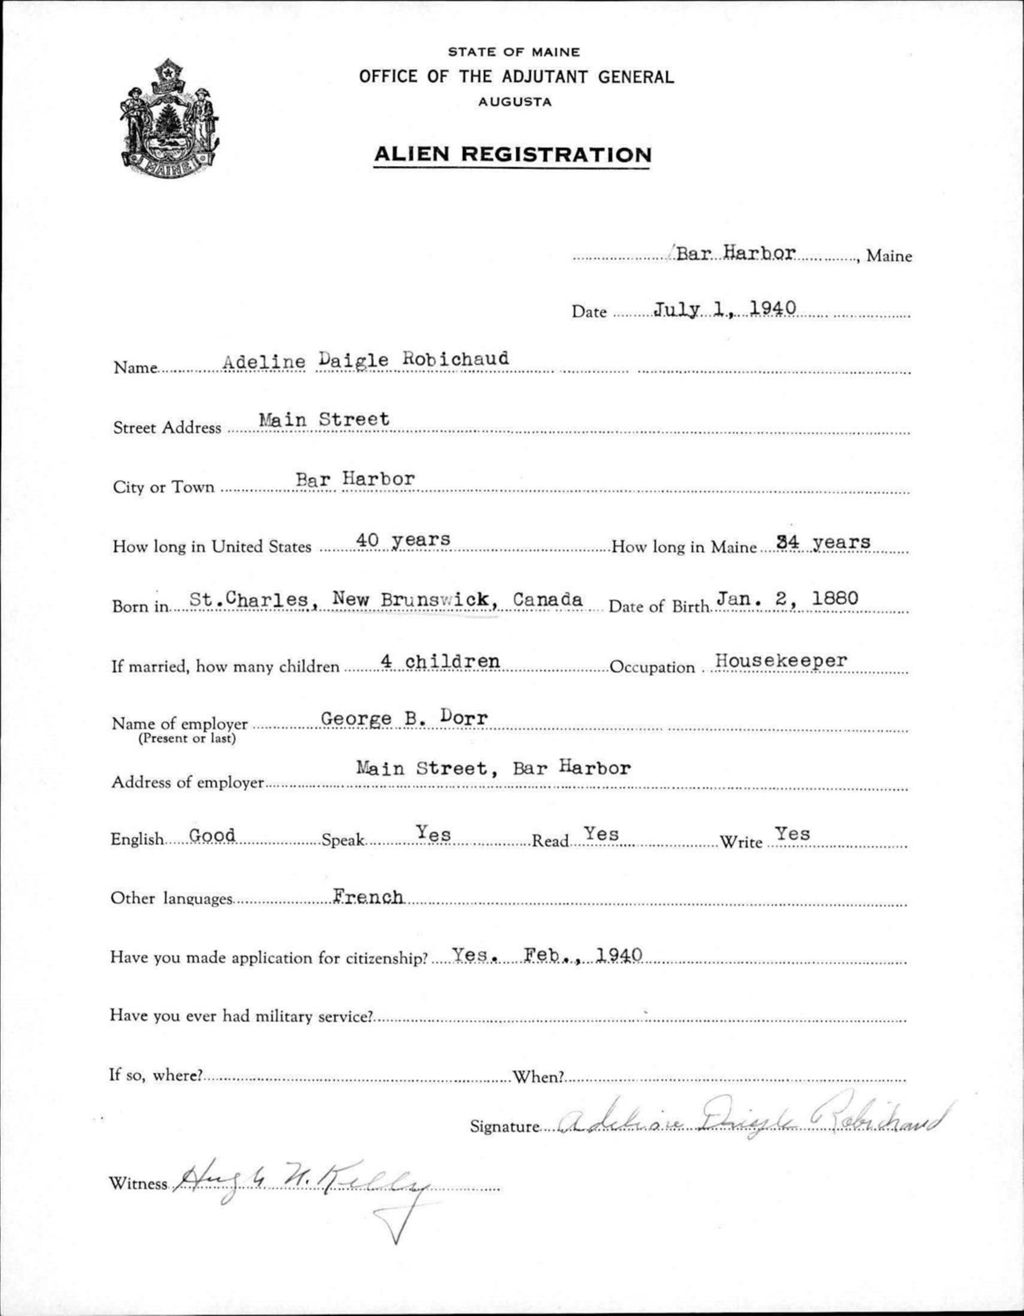 STATE OF MAINE
OFFICE OF THE ADJUTANT GENERAL
AUGUSTA
ALIEN REGISTRATION
MAINE
Bar Harbor, Maine
Date July 1, 1940
Name Adeline Daigle Robichaud
Street Address Main Street
City or Town Bar Harbor
How long in United States 40 years How long in Maine 34 years
Born in St.Charles, New Brunswick, Canada Date of Birth Jan. 2, 1880
If married, how many children 4 children Occupation Housekeeper
Name of employer George B. Dorr
(Present or last)
Address of employer Main Street, Bar Harbor
English Good Speak Yes Read Yes Write Yes
Other languages French
Have you made application for citizenship? Yes. Feb., 1940
Have you ever had military service?
If so, where? When?
Signature Adeline Daigle Robichaud
Witness Hugh N. Kelly